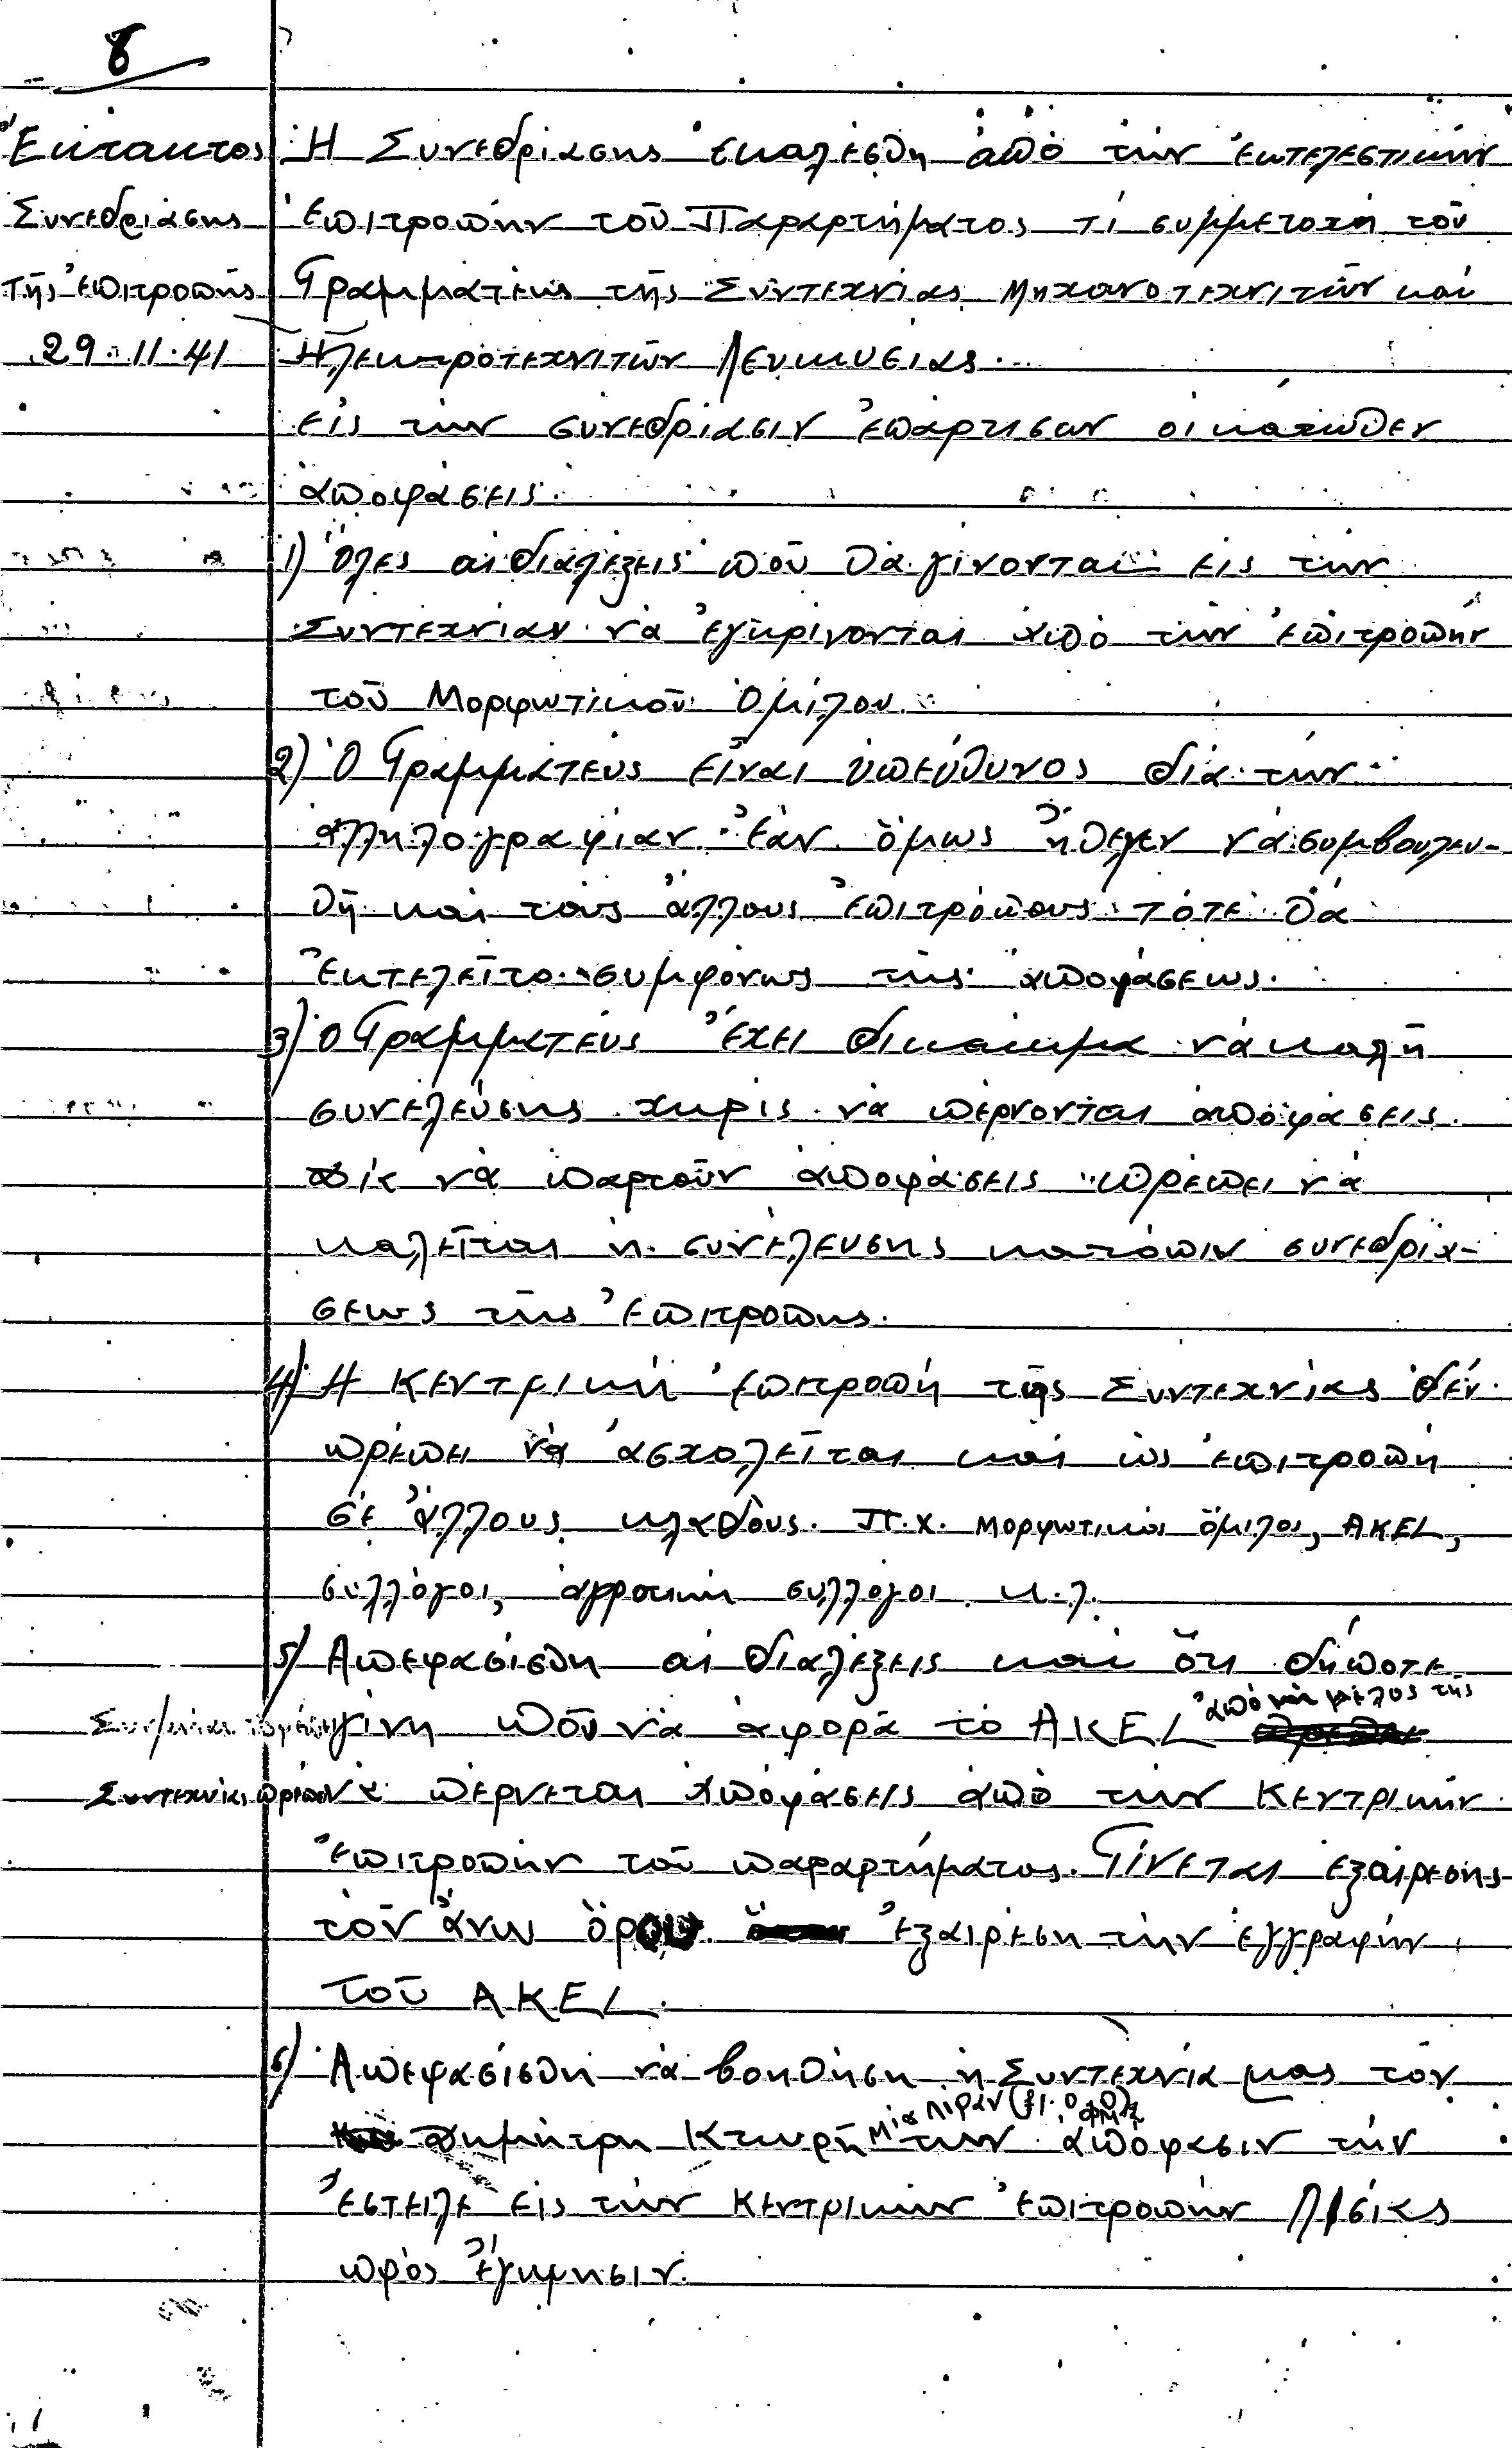 8
Ἔκτακτος
Συνεδρίασης
τῆς Ἐπιτροπῆς
29.11.41
Ἡ Συνεδρίασης ἐκαλέσθη ἀπό τήν Ἐκτελεστικήν
Ἐπιτροπήν τοῦ Παραρτήματος τί συμμετοχή τοῦ
Γραμματέως τῆς Συντεχνίας Μηχανοτεχνιτῶν καί
Ἠλεκτροτεχνιτῶν Λευκωσίας.
Εἰς τήν συνεδρίασιν ἐπάρτησαν οἱ κάτωθεν
ἀποφάσεις.
1) Ὅλες αἱ διαλέξεις πού θά γίνονται εἰς τήν
Συντεχνίαν νά ἐγκρίνονται ἀπό τήν Ἐπιτροπήν
τοῦ Μορφωτικοῦ Ὁμίλου.
2) Ὁ Γραμματεύς εἶναι ὑπεύθυνος διά τήν
ἀλληλογραφίαν. Ἐάν ὅμως ἤθελεν νά συμβουλευ-
θῆ καί τούς ἄλλους Ἐπιτρόπους τότε θά
ἐκτελεῖτο συμφόνως τῆς ἀποφάσεως.
3) Ὁ Γραμματεύς ἔχει δικαίωμα νά καλῆ
συνελεύσης χωρίς νά πέρνονται ἀποφάσεις.
Διά νά παρτοῦν ἀποφάσεις πρέπει νά
καλεῖται ἡ συνέλευσης κατόπιν συνεδριά-
σεως τῆς Ἐπιτροπῆς.
4) Ἡ Κεντρική Ἐπιτροπή τῆς Συντεχνίας δέν
πρέπει νά ἀσχολεῖται καί ὡς ἐπιτροπή
σέ ἄλλους κλάδους. Π.χ. Μορφωτικοί ὅμιλοι, ΑΚΕL,
συλλόγοι, ἀγροτική συλλογοι κ.λ.
5) Ἀπεφασίσθη αἱ διαλέξεις καί ὅτι δήποτε
γίνη πού νά ἀφορᾶ τό ΑΚΕL ἀπό μέλος τῆς
Συντεχνίας πρέπει νά πέρνεται ἀποφάσεις ἀπό τήν Κεντρικήν
Ἐπιτροπήν τοῦ παραρτήματος. Γίνεται ἐξαίρεσης
τόν ἄνω ὅρου ἐξαιρέση τήν ἐγγραφήν
τοῦ ΑΚΕL.
6) Ἀπεφασίσθη νά βοηθήση ἡ Συντεχνία μας τόν
Δημήτρη Κτωρῆ μία λίραν (£1.0.0) τήν ἀπόφασιν τήν
ἔστειλε εἰς τήν Κεντρικήν Ἐπιτροπήν Λ/σίας
πρός ἔγκρησιν.